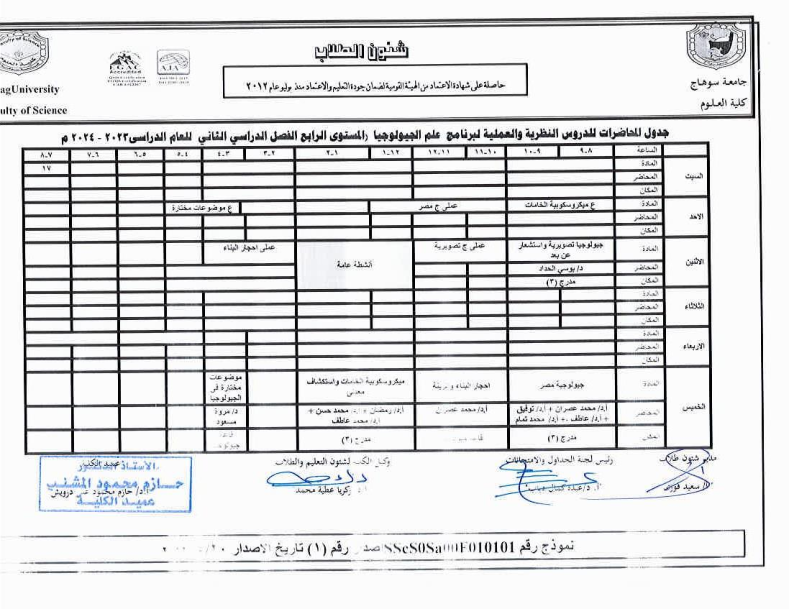 شئون الطلاب
حاصلة على شهادة الاعتماد من الهيئة القومية لضمان جودة التعليم والاعتماد منذ يوليو عام ٢٠١٢
جامعة سوهاج
كلية العلوم
EGAC
Accredited
AJA
agUniversity
ulty of Science
جدول المحاضرات للدروس النظرية والعملية لبرنامج علم الجيولوجيا (المستوى الرابع الفصل الدراسي الثاني للعام الدراسى ٢٠٢٣ - ٢٠٢٤ م
الساعة ٩-٨ ١٠-٩ ١١-١٠ ١٢-١١ ١-١٢ ٢-١ ٣-٢ ٤-٣ ٥-٤ ٦-٥ ٧-٦ ٨-٧
السبت المادة ١٧
المحاضر
المكان
الاحد المادة ع ميكروسكوبية الخامات عملى ج مصر ع موضوعات مختارة
المحاضر
المكان
الاثنين المادة جيولوجيا تصويرية واستشعار عن بعد عملى ج تصويرية أنشطة عامة عملى احجار البناء
المحاضر د/ يوسي الحداد
المكان مدرج (٣)
الثلاثاء المادة
المحاضر
المكان
الاربعاء المادة
المحاضر
المكان
الخميس المادة جيولوجية مصر احجار البناء و ميكروسكوبية الخامات واستكشاف معدنى موضوعات مختارة فى الجيولوجيا
المحاضر أ.د/ محمد عصران + أ.د/ توفيق + أ.د/ عاطف .+ أ.د/ محمد تمام أ.د/ محمد عصران أ.د/ رمضان + أ.د/ محمد حسن + أ.د/ محمد عاطف د/ مروة مسعود
المكان مدرج (٣) مدرج (٣)
مدير شئون طلاب رئيس لجنة الجداول والامتحانات وكيل الكلية لشئون التعليم والطلاب عميد الكلية
أ.د/ زكريا عطية محمد أ.د/ حازم محمود على درويش
الأستاذ الدكتور
حازم محمود المشنب
عميد الكلية
نموذج رقم SScS0Sa00F010101 اصدار رقم (١) تاريخ الاصدار